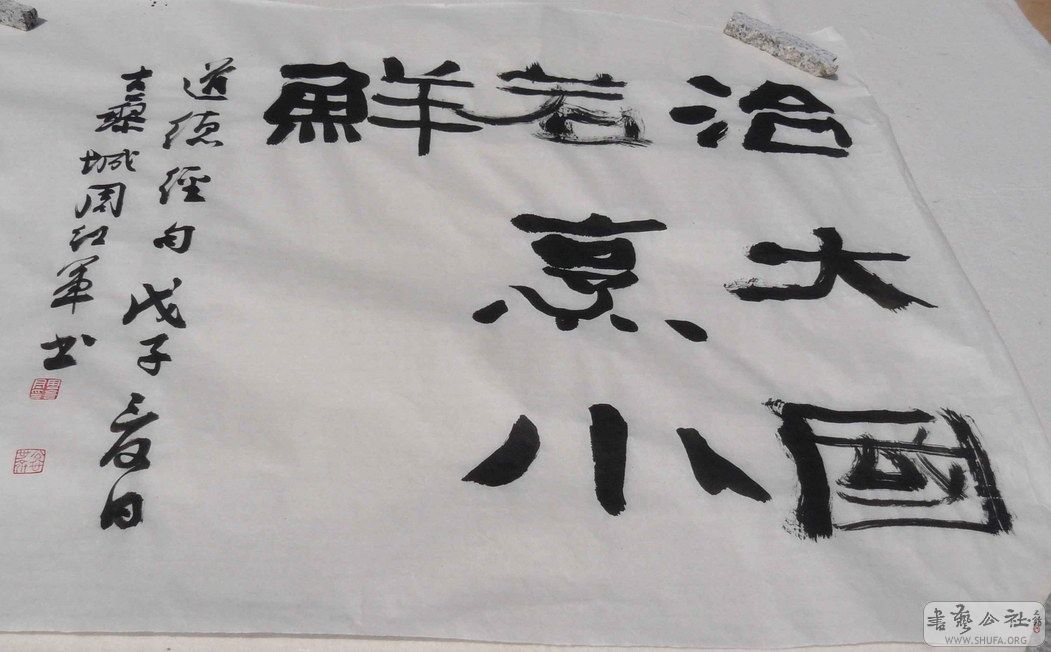 治大國
若烹小
鮮
道德經句戊子夏日
古黎城周红军书
書藝公社
WWW.SHUFA.ORG